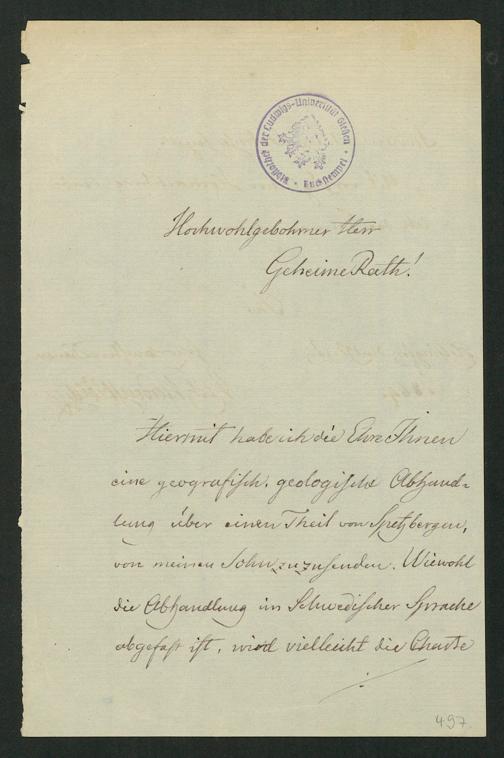 Bibliothek der Ludwigs-Universität Gießen
Tuchstempel
Hochwohlgebohrner Herr
Geheime Rath!
Hiermit habe ich die Ehre Ihnen
eine geografisch. geologische Abhand=
lung über einen Theil von Spetzbergen,
von meinen Sohn zuzusenden. Wiewohl
die Abhandlung in Schwedischer Sprache
abgefast ist, wird vielleicht die Charte
497.